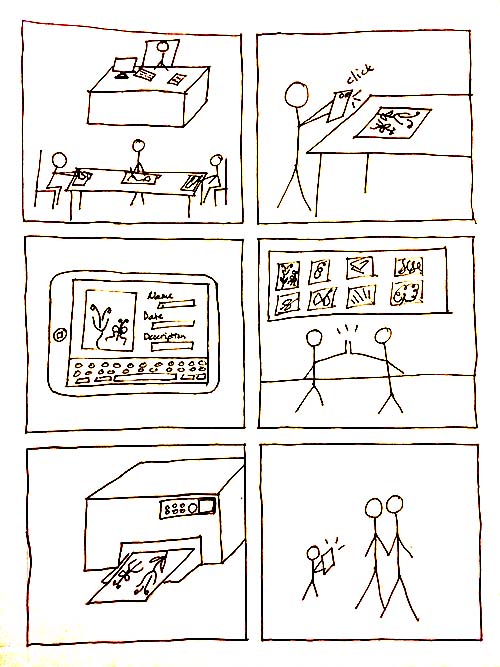 click
Name
Date
Description